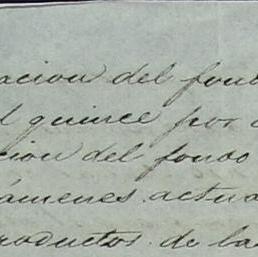 acion del fond
l quince por c
cion del fondo
ámenes actua
roductos de la